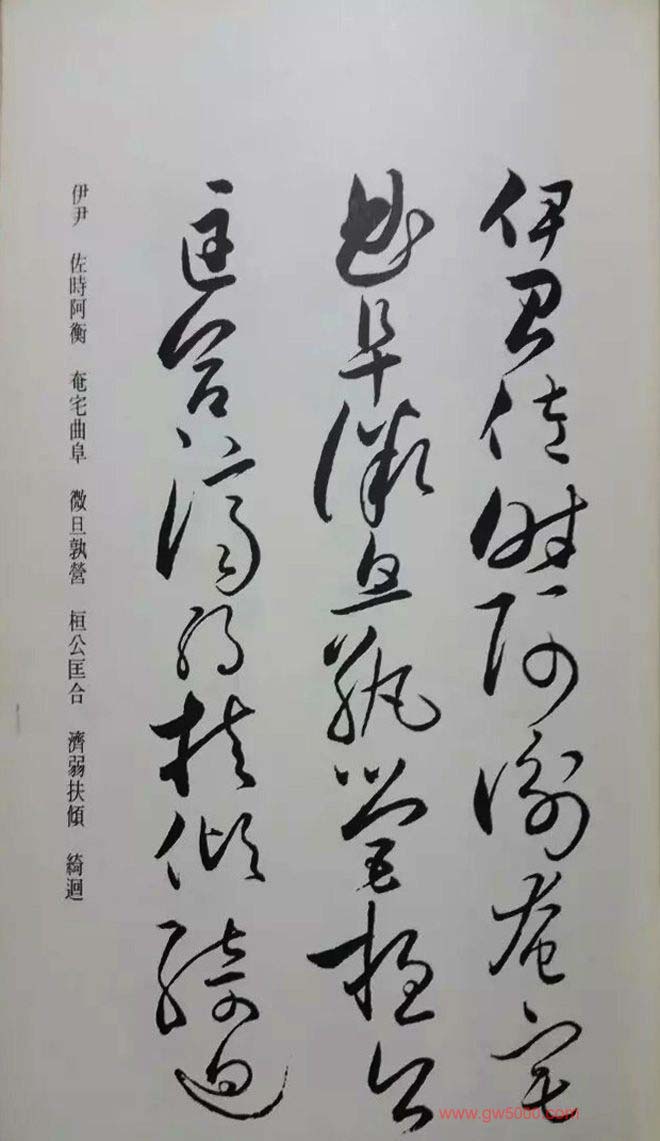 伊尹佐時阿衡奄宅
曲阜微旦孰營桓公
匡合濟弱扶傾綺迴
伊尹 佐時阿衡 奄宅曲阜 微旦孰營 桓公匡合 濟弱扶傾 綺迴
www.gw5000.com